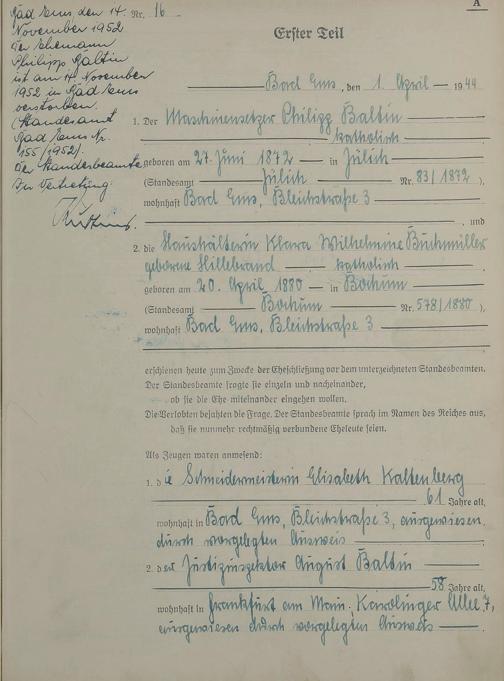 A
Nr. 16
Bad Ems, den 14.
November 1952
der Ehemann
Philipp Baltin
ist am 14. November
1952 in Bad Ems
verstorben.
(Standesamt
Bad Ems Nr.
155/1952).
Der Standesbeamte
In Vertretung:
Erster Teil
Bad Ems, den 1. April 1944
1. Der Maschinensetzer Philipp Baltin
katholisch
geboren am 27. Juni 1872 in Jülich
(Standesamt Jülich Nr. 83/1872),
wohnhaft Bad Ems, Bleichstraße 3
, und
2. die Haushälterin Klara Wilhelmine Buchmüller
geborene Hillebrand katholisch
geboren am 20. April 1880 in Bochum
(Standesamt Bochum Nr. 578/1880),
wohnhaft Bad Ems, Bleichstraße 3
erschienen heute zum Zwecke der Eheschließung vor dem unterzeichneten Standesbeamten.
Der Standesbeamte fragte sie einzeln und nacheinander,
ob sie die Ehe miteinander eingehen wollen.
Die Verlobten bejahten die Frage. Der Standesbeamte sprach im Namen des Reiches aus,
daß sie nunmehr rechtmäßig verbundene Eheleute seien.
Als Zeugen waren anwesend:
1. die Schneidermeisterin Elisabeth Kaltenberg
61 Jahre alt,
wohnhaft in Bad Ems, Bleichstraße 3, ausgewiesen
durch vorgelegten Ausweis
2. der Justizinspektor August Baltin
58 Jahre alt,
wohnhaft in Frankfurt am Main, Karolinger Allee 7,
ausgewiesen durch vorgelegten Ausweis.